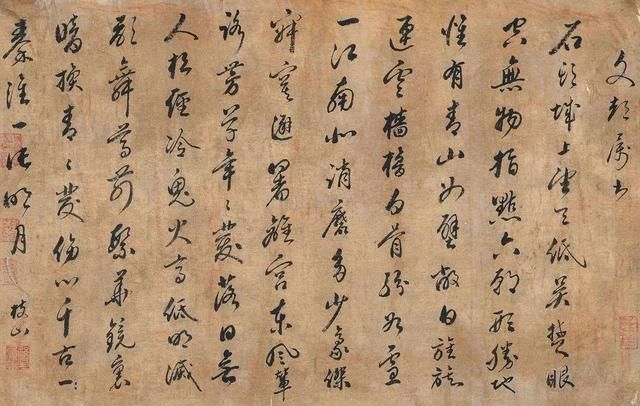 文
石頭城上望天低吳楚眼
空無物指點六朝形勝地
惟有青山如壁蔽日旌旗
連雲檣櫓白骨紛如雪
一江南北消磨多少豪傑
寂寞避暑離宮東風輦
路芳草年々發落日無
人松徑冷鬼火高低明滅
歌舞尊前繁華鏡裏
暗換青々髮傷心千古一
秦淮一片明月
枝山